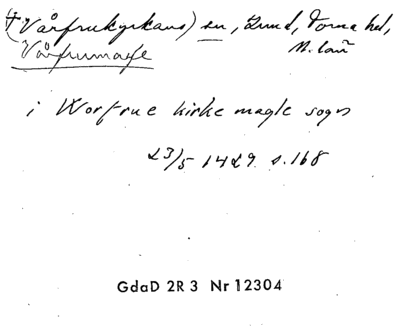 († Vårfrukyrkans) sn, Lund, Torna hd,
Vårfrumagle M. län
i Worfrue kirke magle sogn
23/5 1429 s. 168
GdaD 2R3 Nr 12304